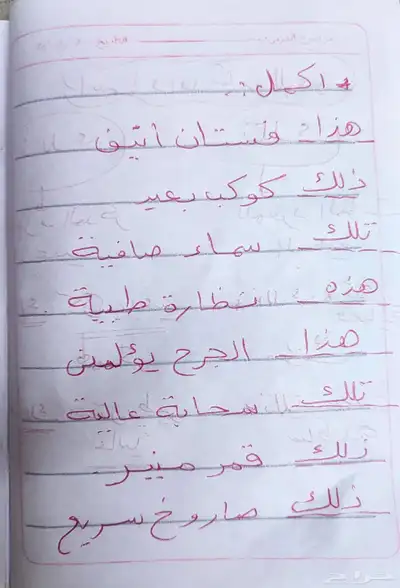 * اكمل :.
هذا فستان أنيق
ذلك كوكب بعيد
تلك سماء صافية
هذه نظارة طبية
هذا الجرح يؤلمني
تلك سحابة عالية
ذلك قمر منير
ذلك صاروخ سريع